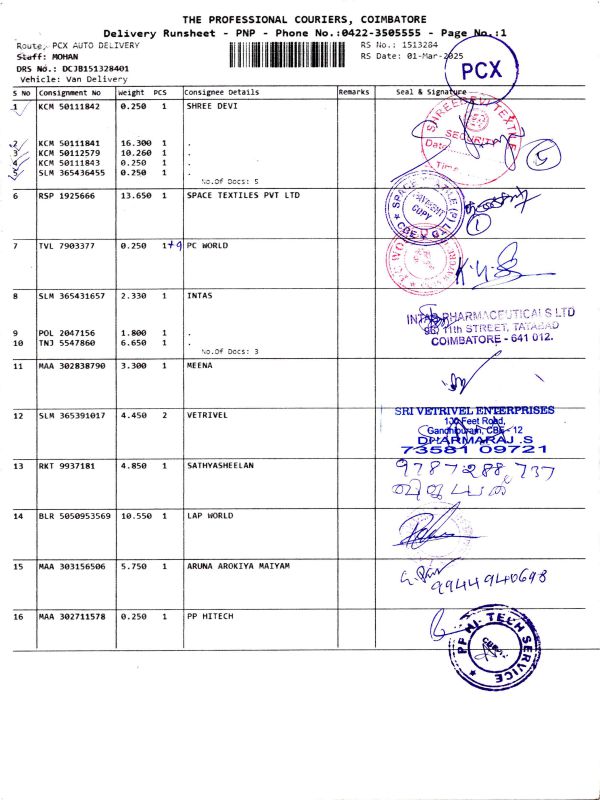 THE PROFESSIONAL COURIERS, COIMBATORE
Delivery Runsheet - PNP - Phone No.:0422-3505555 - Page No.:1
Route: PCX AUTO DELIVERY RS No.: 1513284
Staff: MOHAN RS Date: 01-Mar-2025
DRS No.: DCJB151328401
Vehicle: Van Delivery
PCX
S No Consignment No Weight PCS Consignee Details Remarks Seal & Signature
1 KCM 50111842 0.250 1 SHREE DEVI
KCM 50111841 16.300 1 .
KCM 50112579 10.260 1 .
KCM 50111843 0.250 1 .
SLM 365436455 0.250 1 .
No.Of Docs: 5
SHREEDEVI TEXTILE
SECURITY
Date
Time
5
6 RSP 1925666 13.650 1 SPACE TEXTILES PVT LTD
COPY
1
7 TVL 7903377 0.250 1+9 PC WORLD
8 SLM 365431657 2.330 1 INTAS
9 POL 2047156 1.800 1 .
10 TNJ 5547860 6.650 1 .
No.Of Docs: 3
INTAS PHARMACEUTICALS LTD
11th STREET, TATABAD
COIMBATORE - 641 012.
11 MAA 302838790 3.300 1 MEENA
12 SLM 365391017 4.450 2 VETRIVEL
SRI VETRIVEL ENTERPRISES
100 Feet Road,
Gandhipuram, CBE - 12
DHARMARAJ .S
73581 09721
13 RKT 9937181 4.850 1 SATHYASHEELAN
9787 288 737
14 BLR 5050953569 10.550 1 LAP WORLD
15 MAA 303156506 5.750 1 ARUNA AROKIYA MAIYAM
9944940698
16 MAA 302711578 0.250 1 PP HITECH
PP HI-TECH SERVICE